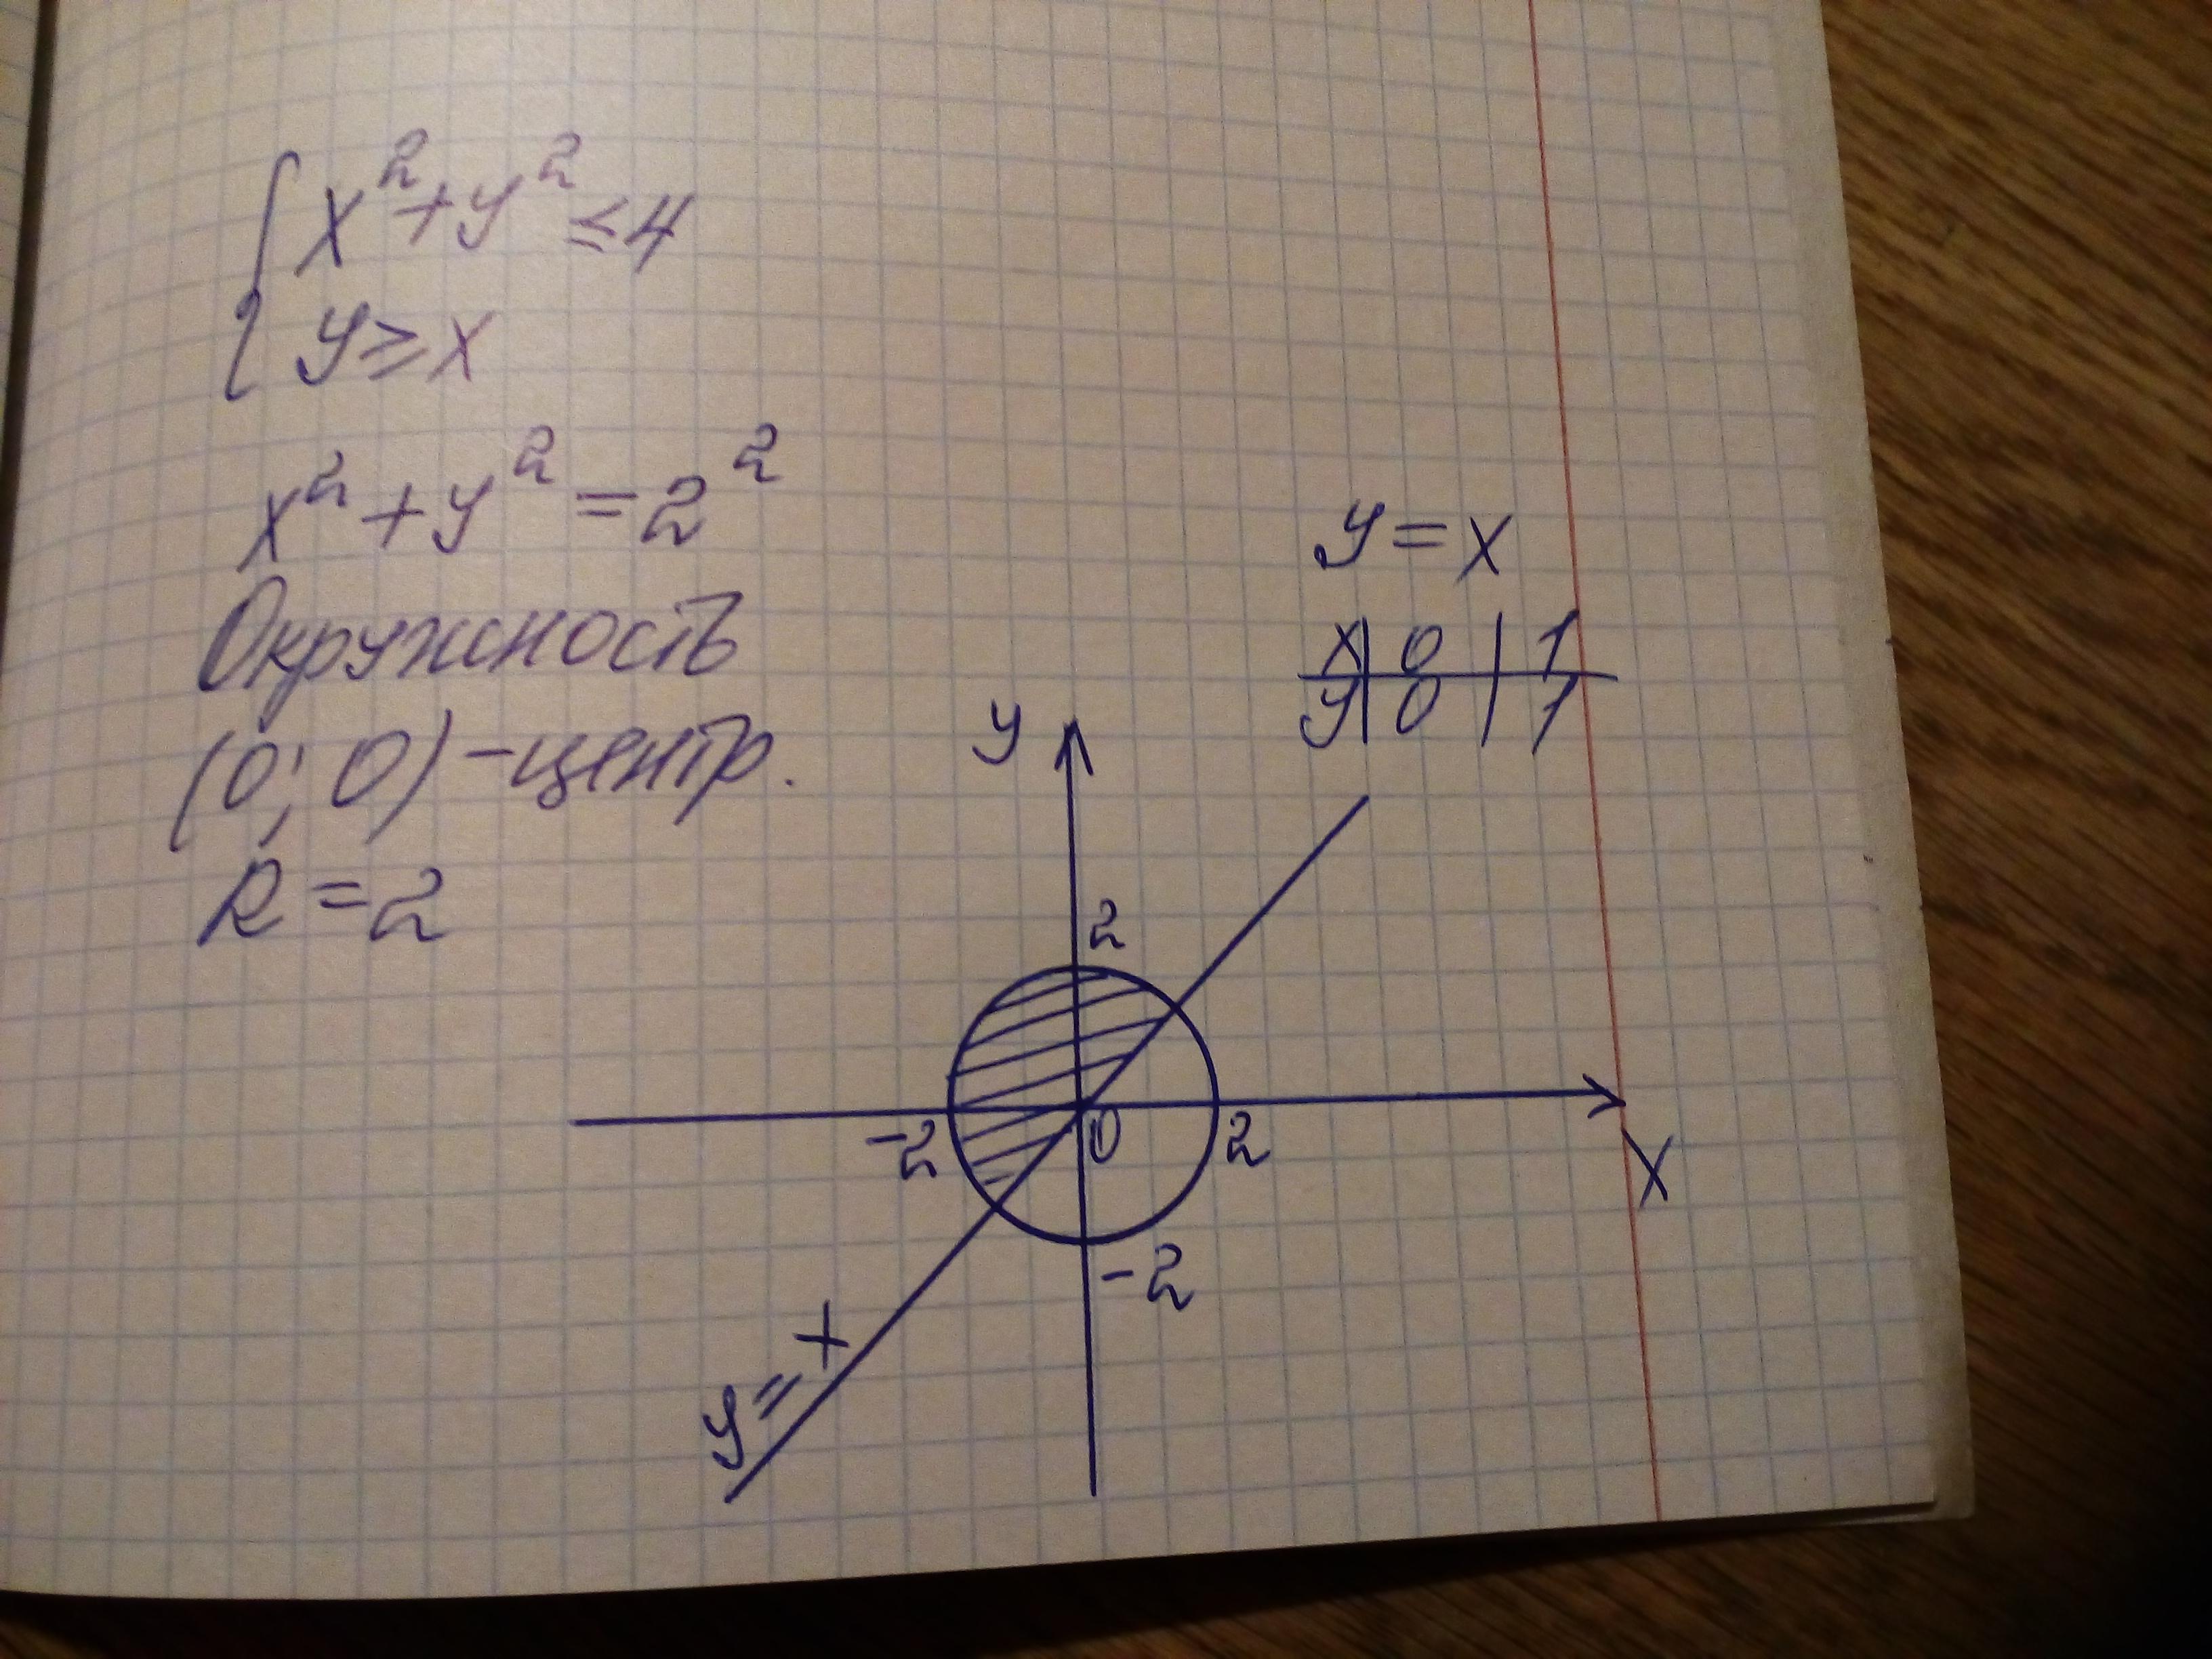 { x² + y² ≤ 4
y ≥ x
x² + y² = 2²
Окружность
(0; 0) - центр.
R = 2
y = x
x | 0 | 1
y | 0 | 1
y
2
-2
0
2
x
-2
y = x